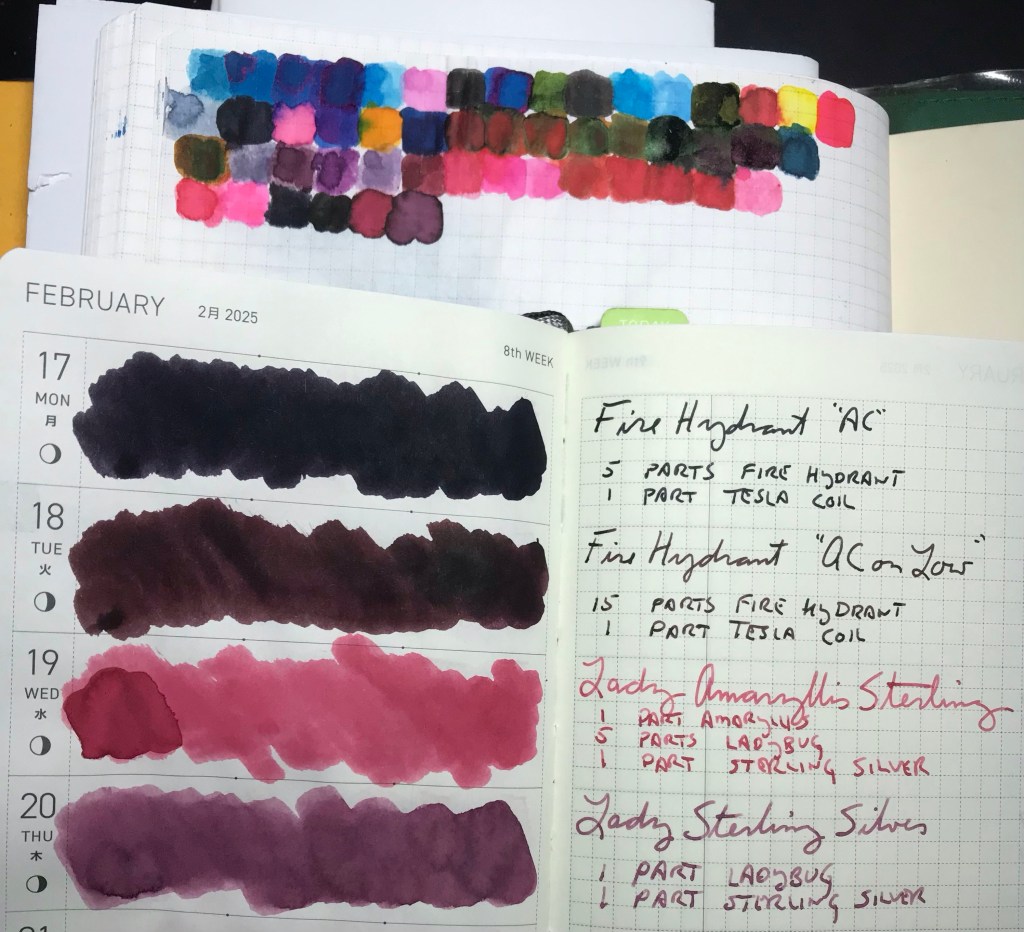 TODAY
FEBRUARY 2月 2025
8th WEEK
17
MON
月
18
TUE
火
19
WED
水
20
THU
木
21
Fire Hydrant "AC"
5 PARTS FIRE HYDRANT
1 PART TESLA COIL
Fire Hydrant "AC on Low"
15 PARTS FIRE HYDRANT
1 PART TESLA COIL
Lady Amaryllis Sterling
1 PART AMARYLLIS
5 PARTS LADYBUG
1 PART STERLING SILVER
Lady Sterling Silver
1 PART LADYBUG
1 PART STERLING SILVER